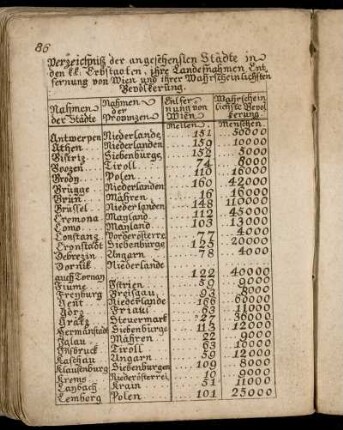 86
Verzeichniß der angesehensten Städte in
den kk. Erbstaaten, ihre Landesnahmen, Ent
fernung von Wien und ihrer Wahrscheinlichsten
Bevölkerung.
Nahmen der Städte Nahmen der Provinzen Entfer nung von Wien Wahrschein lichste Bevöl kerung
Meilen Menschen
Antwerpen Niederlande 151 50000
Athen Niederlanden 159 10000
Bistriz Siebenburge 152 5000
Boozen Tiroll 74 8000
Brody Polen 110 16000
Brügge Niederlanden 160 42000
Brün Mähren 16 16000
Brüssel Niederlanden 148 110000
Cremona Mayland 112 45000
Como Mayland 103 13000
Constanz Vorderösterre 77 4000
Cronstadt Siebenburge 125 20000
Debrezin Ungarn 78 4000
Dornik Niederlande
auch Tornay 122 40000
Fiume Istrien 59 9000
Freyburg Breisgau 92 8000
Gent Niederlande 166 60000
Görz Friaul 63 11000
Grätz Steuermark 27 56000
Hermanstadt Siebenburge 113 12000
Iglau Mähren 22 9000
Insbruck Tiroll 63 10000
Kaschau Ungarn 59 12000
Klausenburg Siebenburgen 109 8000
Krems Niederösterrei 10 9000
Laybach Krain 51 11000
Lemberg Polen 101 25000